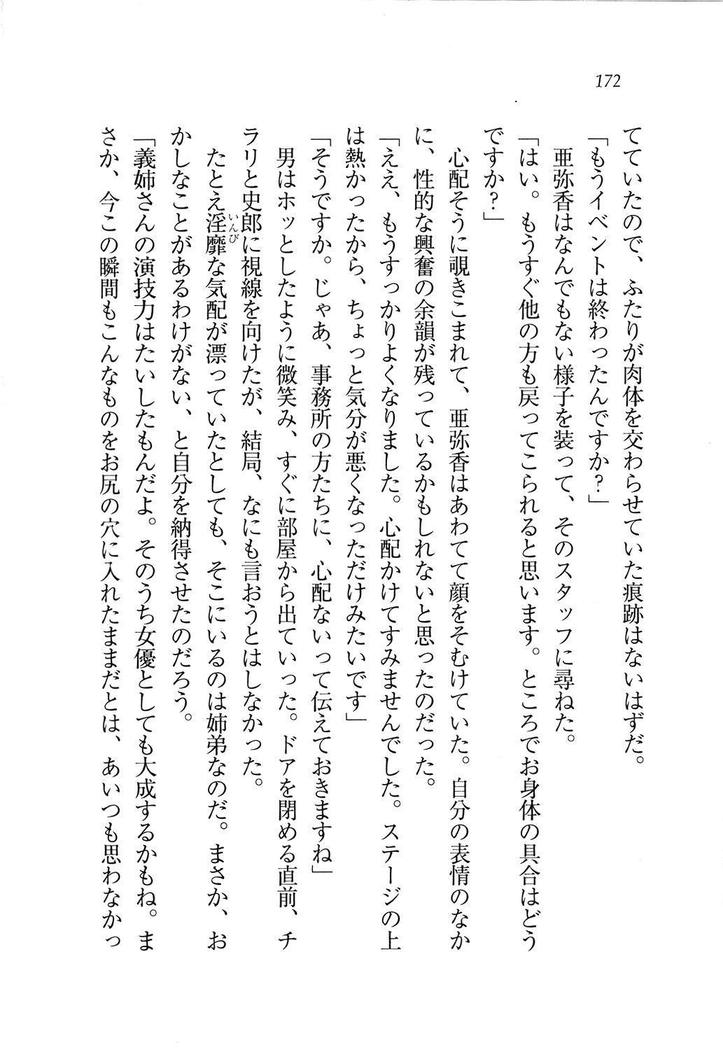 172
てていたので、ふたりが肉体を交わらせていた痕跡はないはずだ。
「もうイベントは終わったんですか？」
亜弥香はなんでもない様子を装って、そのスタッフに尋ねた。
「はい。もうすぐ他の方も戻ってこられると思います。ところでお身体の具合はどう
ですか？」
心配そうに覗きこまれて、亜弥香はあわてて顔をそむけていた。自分の表情のなか
に、性的な興奮の余韻が残っているかもしれないと思ったのだった。
「ええ、もうすっかりよくなりました。心配かけてすみませんでした。ステージの上
は熱かったから、ちょっと気分が悪くなっただけみたいです」
「そうですか。じゃあ、事務所の方たちに、心配ないって伝えておきますね」
男はホッとしたように微笑み、すぐに部屋から出ていった。ドアを閉める直前、チ
ラリと史郎に視線を向けたが、結局、なにも言おうとはしなかった。
たとえ淫靡な気配が漂っていたとしても、そこにいるのは姉弟なのだ。まさか、お
いんび
かしなことがあるわけがない、と自分を納得させたのだろう。
「義姉さんの演技力はたいしたもんだよ。そのうち女優としても大成するかもね。ま
さか、今この瞬間もこんなものをお尻の穴に入れたままだとは、あいつも思わなかっ